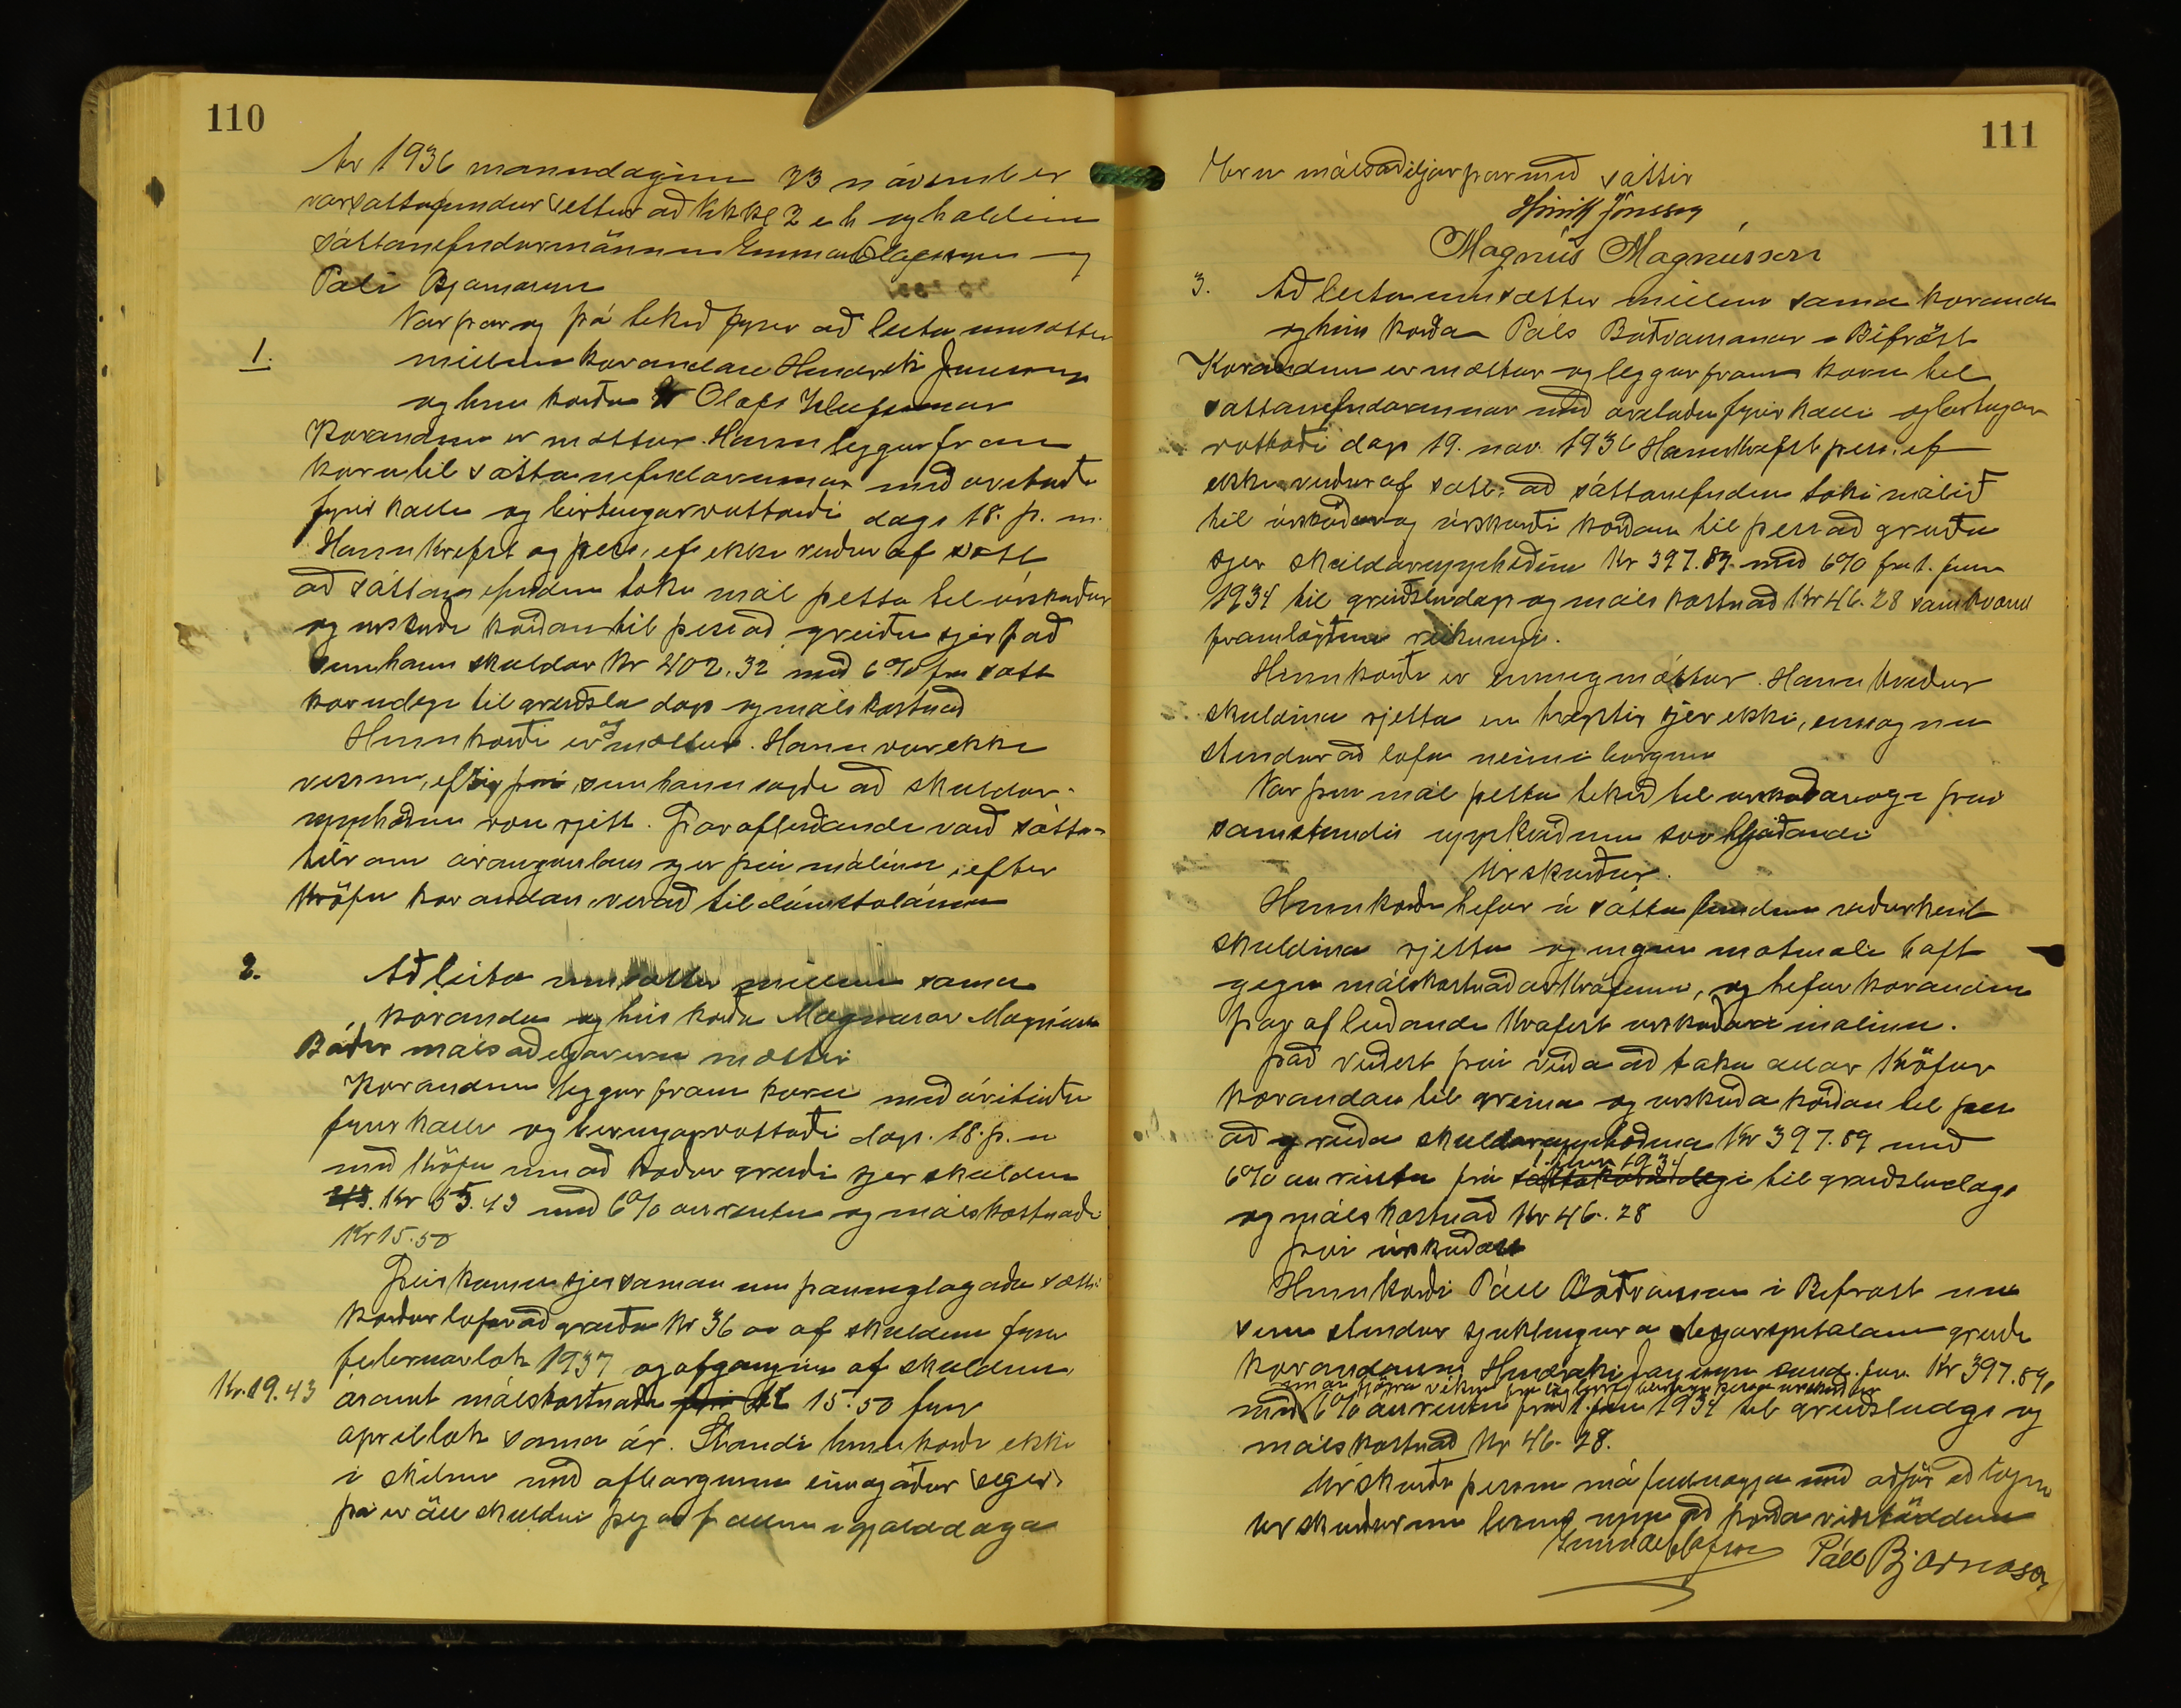 110
Ár 1936 mánudaginn 23 nóvember
var sáttafundur settur að kl 2 e h og haldinn
sáttanefndarmönnum Ólafssyni og
Páli Bjarnasyni
Var þar og þá tekið fyrir að leita um sættir
1.
millum kærandans Hendrik Jónssonar
og hins kærða Ólafs
Kærandinn er mættur. Hann leggur fram
kæru til sáttanefndarinnar með áritaðri
fyrir kalli og birtingarvottorði dags 18. þ. m.
Hann krefst og þess, ef ekki verður af sátt
að sáttanefndin taki mál þetta til úrskurðar
og úrskurði kærðan til þess að greiða sjer það
sem hann skuldar kr 402.32 með 6% frá sátta
kærudegi til greiðslu dags og málskostnað
Hinn kærði er og mættur. Hann var ekki
viss um, eftir því, sem hann sagði að skuldar-
upphæðin væri rjett. Þar afleiðandi varð sátta-
tilraun árangurslaus og er því málinu, eftir
kröfu kærandans, vísað til dómstólanna
2.
Að leita um sættir millum sama
kæranda og hins kærða Magnúsar Magnússonar
Báðir málsaðiljar eru mættir
Kærandinn leggur fram kæru með áritaðri
fyrirkalli og birtingarvottorði dags. 18. þ. m
með kröfu um að kærður greiði sjer skuldina
Kr 55.43 með 6% ársrentu og málskostnaði
Kr 15.50
Þeir komu sjer saman um þannig lagaða sátt:
Kærður lofar að greiða kr 36 oo af skuldinni fyrir
febrúarlok 1937 og afganginn af skuldinni,
Kr. 19.43
ásamt málskostnaði 15.50 fyrir
apríllok sama ár. Standi hinn kærði ekki
í skilum með afborgunum eins og áður segir,
þá er öll skuldin þegar fallin í gjalddaga
111
Eru málsaðiljar þar með sáttir
Hinrik Jónsson
Magnús Magnússon
3. Að leita um sættir millum sama kæranda
og hins kærða Páls Böðvarssonar Bifröst
Kærandinn er mættur og leggur fram kæru til
sáttanefndarinnar með áritaðri fyrirkalli og birtingar
vottorði dags 19. nóv. 1936 Hann krefst þess, ef
ekki verður af sátt, að sáttanefndin taki málið
til úrskurðar og úrskurði kærðan til þess að greiða
sjer skuldarupphæðina kr 397.89 með 6% frá 1. júní
1934 til greiðsludags og málskostnað Kr 46.28 samkvæmt
framlögðum reikningi.
Hinn kærði er einnig mættur. Hann kveður
skuldina rjetta en treystir sjer ekki, eins og nú
stendur að lofa neinni borgun
Var því mál þetta tekið til úrskurðar og í því
samstundis uppkveðinn svo hljóðandi
Úrskurður.
Hinn kærði hefur á sáttafundinum viðurkent
skuldina rjetta og engin mótmæli haft
gegn málskostnaðarkröfunni, og hefur kærandinn
þar af leiðandi krafist úrskurðar í málinu.
Það virðist því verða að taka allar kröfur
kærandans til greina og úrskurða kærðan til þess
að greiða skuldarupphæðina Kr 397.89 með
1. júní 1934
6% ársrentu frá sáttakærudegi til greiðsludags
og málskostnað Kr 46.28
því úrskurðast
Hinn kærði Páll Böðvarsson í Bifröst nú
sem stendur sjúklingur á spítalanum greiði
kærandanum Hendriki Jónssyni Kr 397.89,
með 6% ársrentu frá 1. júní 1934 til greiðsludags og
málskostnað Kr 46.28.
Úrskurði þessum má fullnægja með aðför að lögum
Úrskurðurinn lesinn upp að kærða viðstöddum
Páll Bjarnason